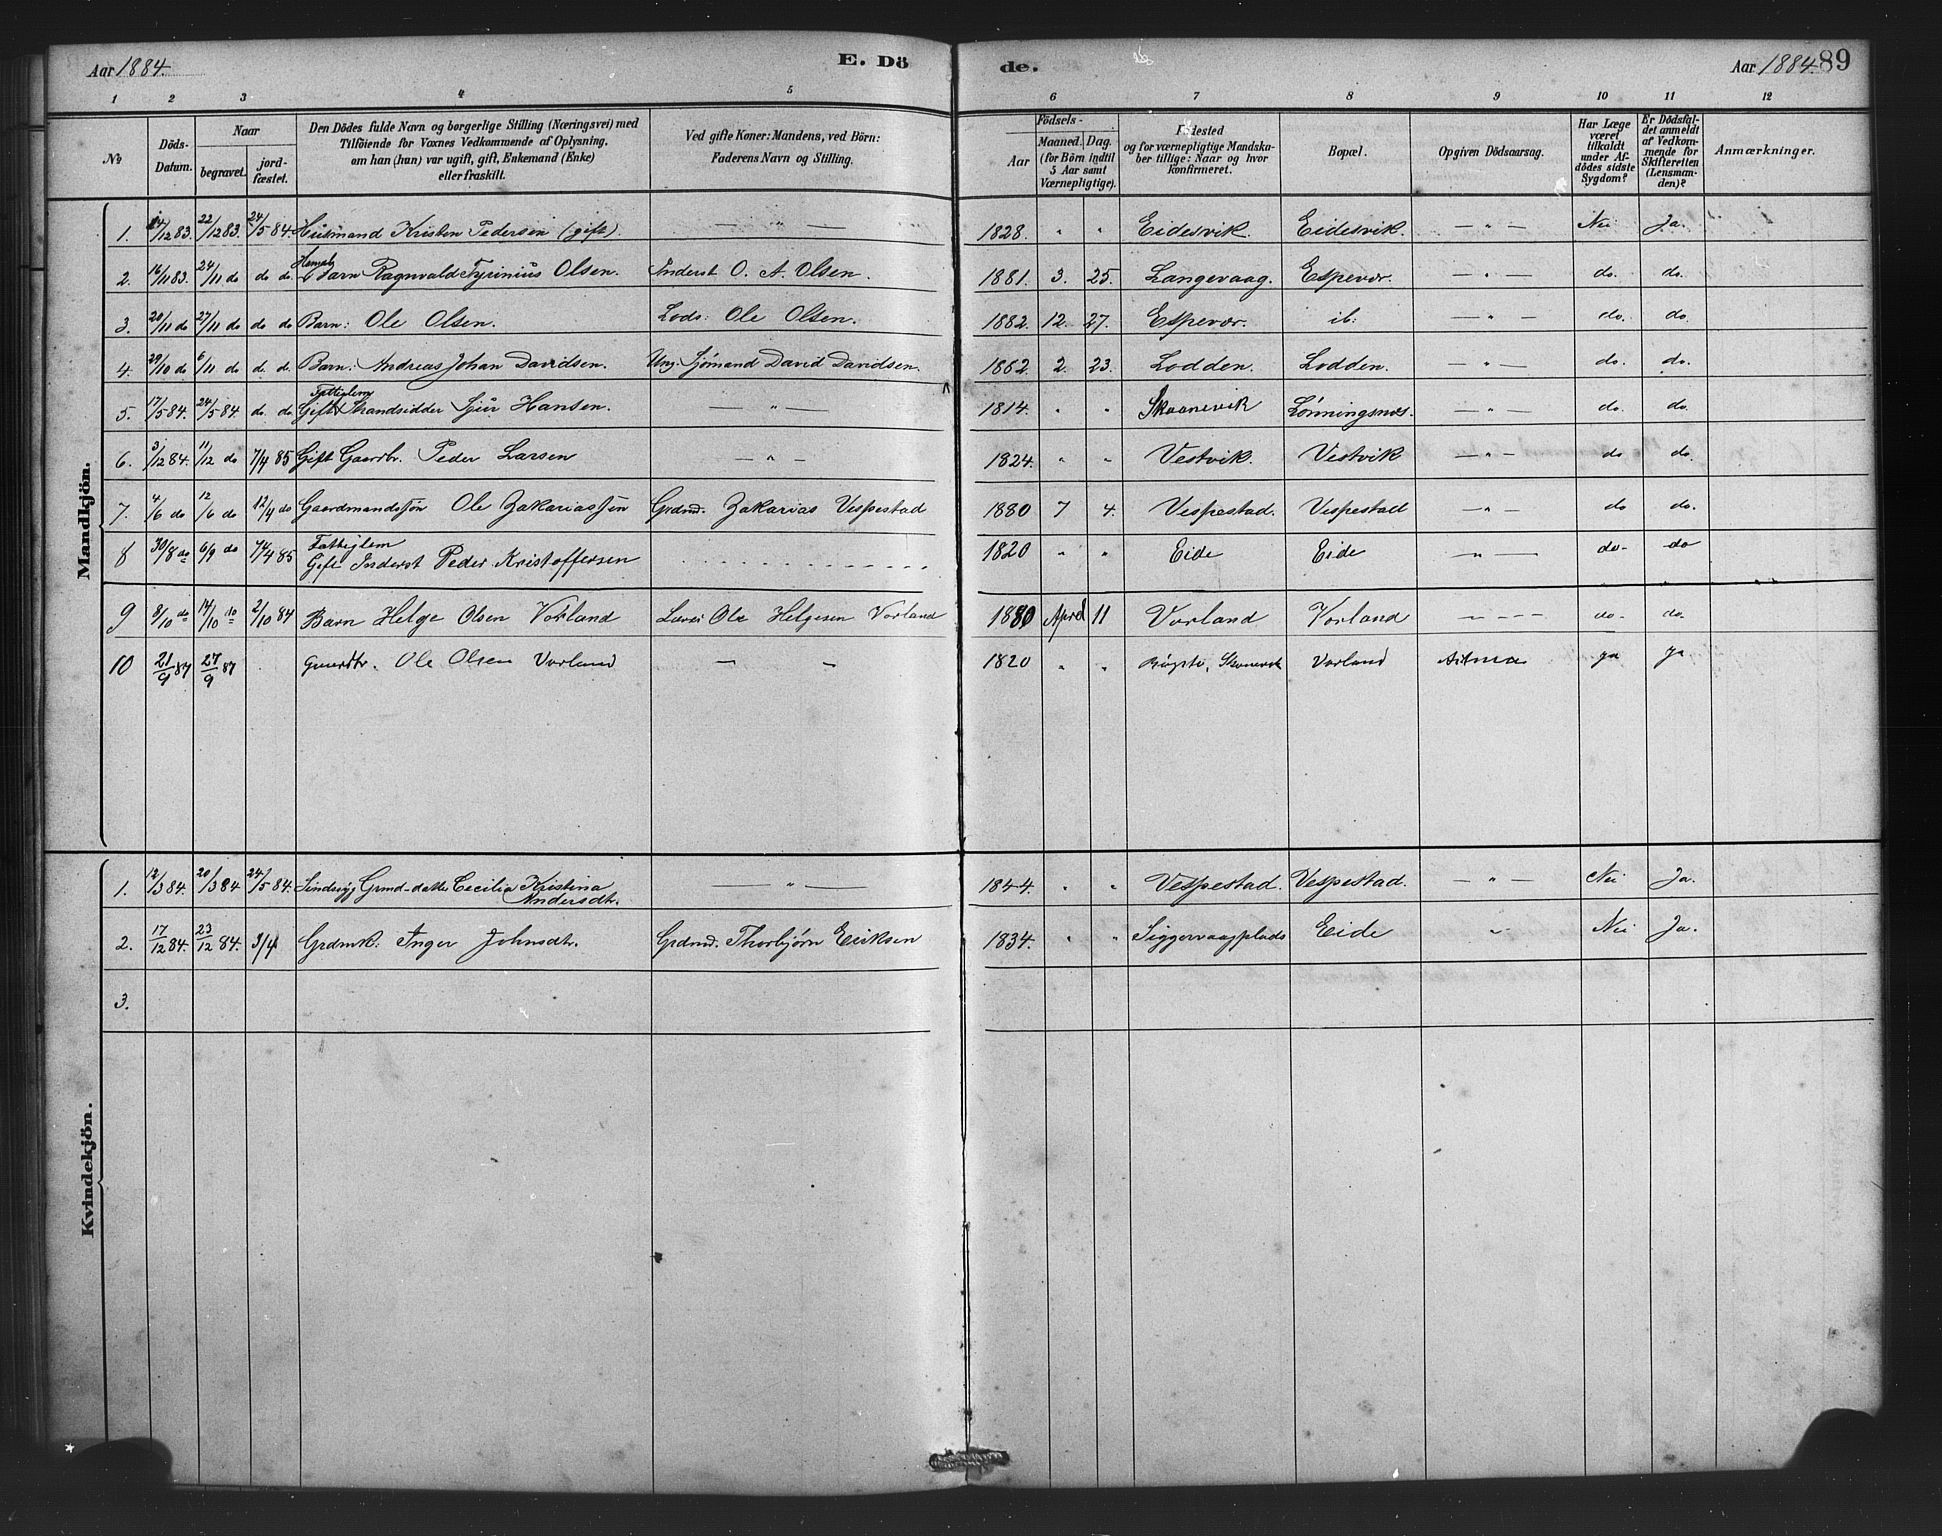 Aar 1884. E. Dö de. Aar 1884. 89
1 2 3 4 5 6 7 8 9 10 11 12
No
Döds-Datum.
Naar
begravet. jord-fæstet.
Den Dödes fulde Navn og borgerlige Stilling (Næringsvei) med
Tilföiende for Voxnes Vedkommende af Oplysning,
om han (hun) var ugift, gift, Enkemand (Enke)
eller fraskilt.
Ved gifte Koner: Mandens, ved Börn:
Faderens Navn og Stilling.
Födsels-
Aar Maaned. Dag.
(for Börn indtil
5 Aar samt
Værnepligtige).
Födested
og for værnepligtige Mandska-
ber tillige: Naar og hvor
konfirmeret.
Bopæl.
Opgiven Dödsaarsag.
Har Læge
været
tilkaldt
under Af-
dödes sidste
Sygdom?
Er Dödsfal-
det anmeldt
af Vedkom-
mende for
Skifteretten
(Lensman-
den)?
Anmærkninger.
Mandkjön.
1. 14/12 83. 22/12 83. 24/5 84. Husmand Kristen Pedersen (gift). — " — 1828. " " Eidesvik. Eidesvik. — " — Nei Ja.
2. 16/11 83. 24/11 do do do Barn Ragnvald Tyrinius Olsen. Inderst O. A. Olsen. 1881. 3. 25. Langevaag. Espevær. — " — do. do.
3. 20/11 do 27/11 do do do Barn: Ole Olsen. Lods: Ole Olsen. 1882. 12. 27. Espevær. ib: — " — do. do.
4. 29/10 do 6/11 do d. d. Barn: Andreas Johan Davidsen. Ung. Sjømand David Davidsen. 1882 2. 23. Lodden. Lodden. — " — do. do.
5. 17/5 84. 24/5 84. do. do. Gift Fattiglem Strandsidder Sjur Hansen. — " — 1814. " " Skaanevik Lønningsnæs. — " — do. do.
6. 3/12 84. 11/12 do 7/4 85 Gift Gaardbr. Peder Larsen — " — 1824. " " Vestvik. Vestvik — " — do do.
7. 4/6 do 12/6 do 12/4 do Gaardmandssøn Ole Zakariassen Grdmd. Zakarias Vespestad 1880 7 4. Vespestad. Vespestad — " — do do.
8 30/8 do 6/9 do 7/4 85 Fattiglem
Gift Inderst Peder Kristoffersen . . . . . . . . . . . . . 1820 " " Eide Eide — " — do- do
9 8/10 do 14/10 do 2/10 84 Barn Helge Olsen Vorland Ole Helgesen Vorland 1880 April 11 Vorland Vorland - - - - do- do.
10 21/9 84 27/9 84 Gaardbr. Ole Olsen Vorland — — 1820 " " Skonevik Vorland Astma ja ja
Kvindekjön.
1. 12/3 84. 20/3 84 24/5 84. Sindssyg Grmd-datter Cecilia Kristina
Andersdtr. — " — 1844. " " Vespestad. Vespestad. — " — Nei Ja.
2. 17/12 84. 23/12 84. 3/4 Grdmk: Inger Johnsdtr. Grdmd. Thorbjørn Eriksen 1834. " " Siggervaagplads Eide " Nei Ja.
3.